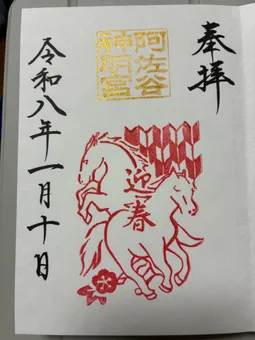 奉拝
阿佐谷
神明宮
迎春
令和八年一月十日